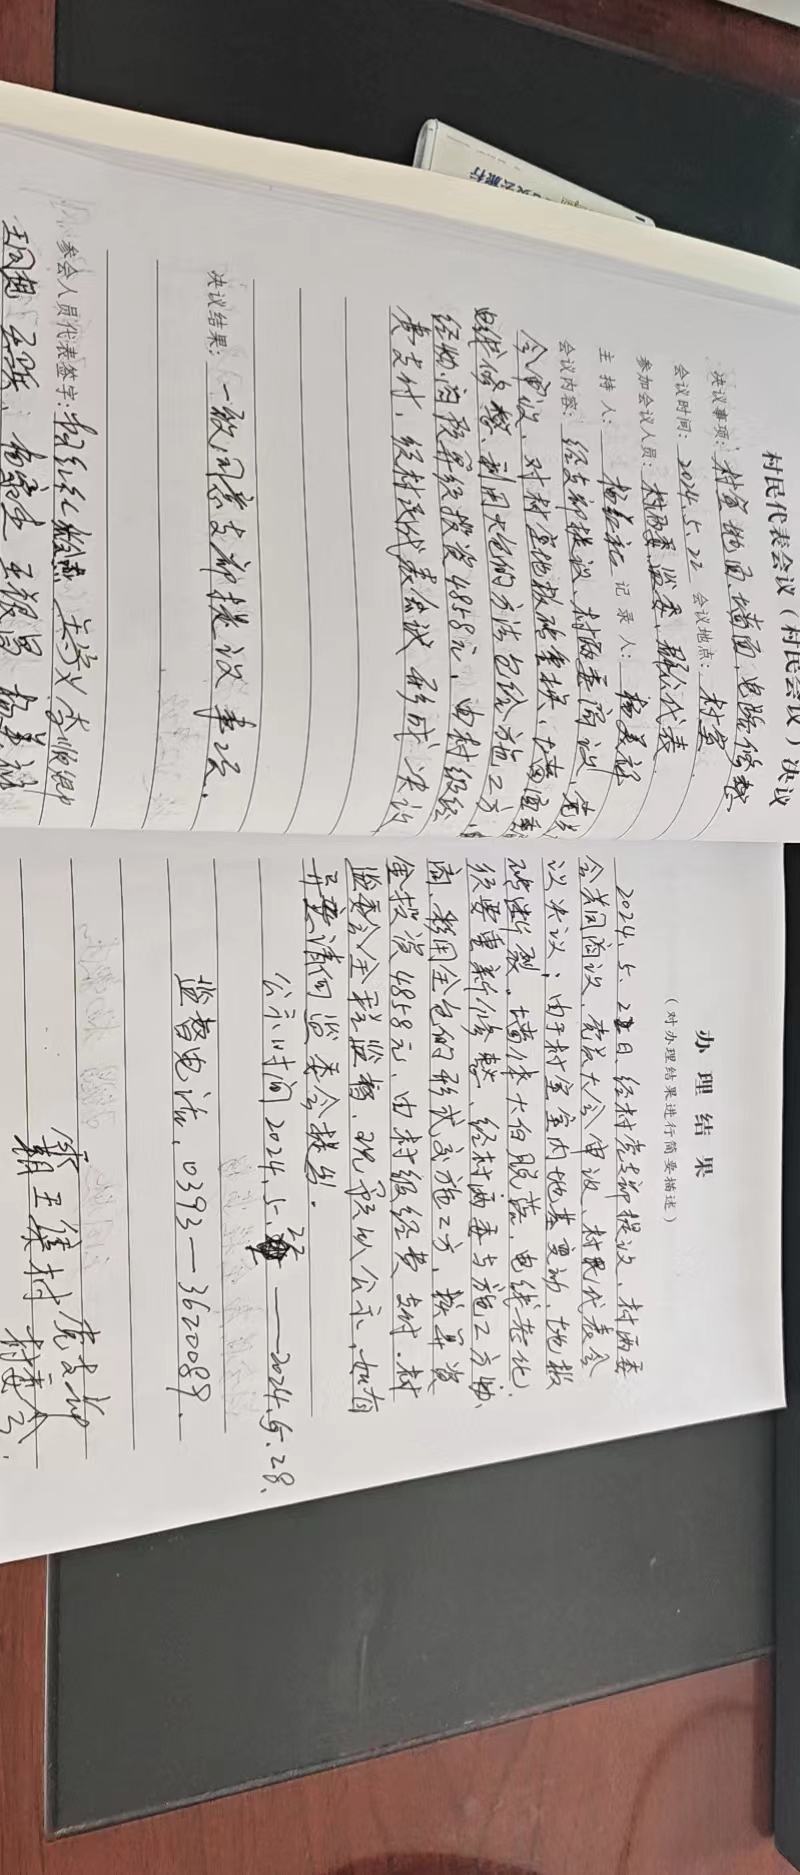 村民代表会议（村民会议）决议
决议事项：村室地面、墙面、电路修整
会议时间：2024.5.22 会议地点：村室
参加会议人员：村两委、监委、群众代表
主持人： 记录人：
会议内容：经支部提议、村两委商议、党员大
会审议、对村室地板砖重换、墙面重
电线修整、利用大包的方法包给施工方
经协商预算经投资4858元，由村级经
费支付，经村民代表会议形成决议
决议结果：一致同意支部提议事项。
参会人员代表签字：
办理结果
（对办理结果进行简要描述）
2024.5.22日，经村党支部提议、村两委
会共同商议、党员大会审议、村民代表会
议决议，由于村室室内地基变动、地板
砖断裂，墙体大白脱落，电线老化，
须要重新修整，经村两委与施工方协
商，利用全包的形式承施工方，预算资
金投资4858元，由村级经费支付，村
监委会全程监督，现予以公示，如有
异议请向监委会提出。
公示时间2024.5.22——2024.5.28.
监督电话，0393—3620089.
王集村党支部
村委会.